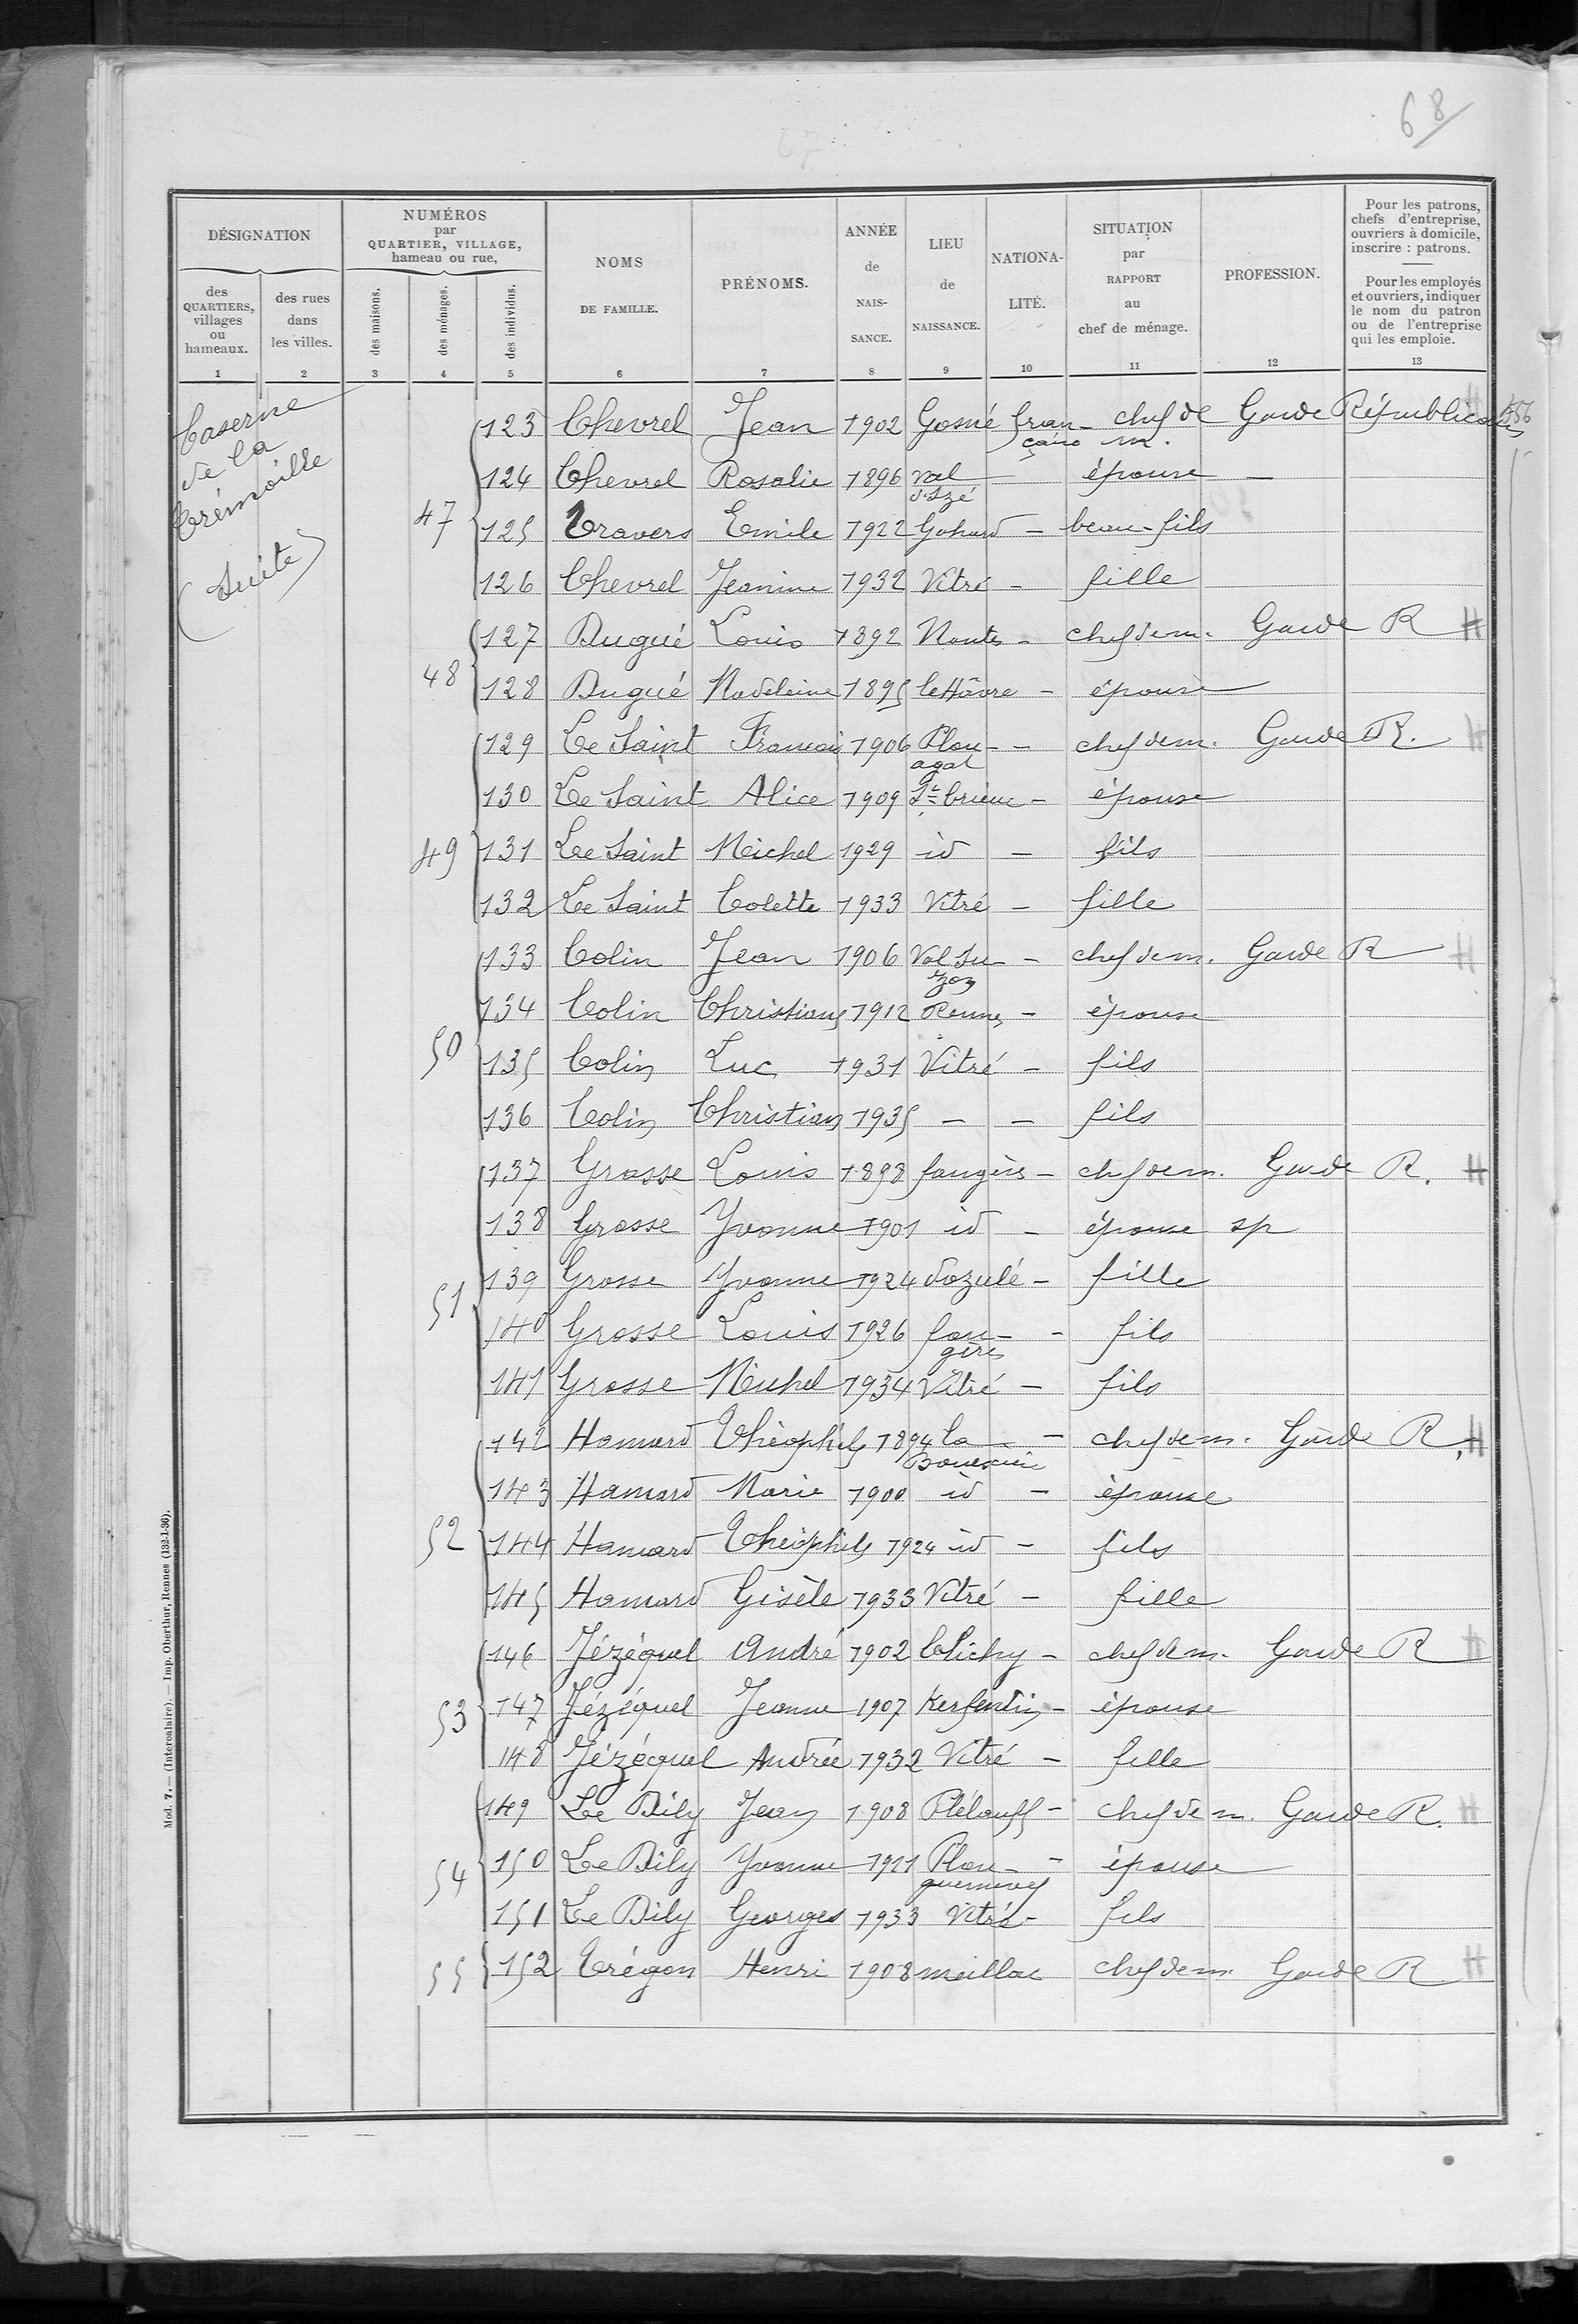 68
DÉSIGNATION
NUMÉROS
par
QUARTIER, VILLAGE,
hameau ou rue,
des
QUARTIERS,
villages
ou
hameaux.
des rues
dans
les villes.
des maisons.
des ménages.
des individus.
NOMS
DE FAMILLE.
PRÉNOMS.
ANNÉE
de
NAIS-
SANCE.
LIEU
de
NAISSANCE.
NATIONA-
LITÉ.
SITUATION
par
RAPPORT
au
chef de ménage.
PROFESSION.
Pour les patrons,
chefs d'entreprise,
ouvriers à domicile,
inscrire : patrons.
Pour les employés
et ouvriers, indiquer
le nom du patron
ou de l'entreprise
qui les emploie.
1 2 3 4 5 6 7 8 9 10 11 12 13
Caserne
de la
Trémoille
(Suite)
123 Chevrel Jean 1902 Gosné fran-çaise chef de m. Garde Républicain
124 Chevrel Rosalie 1896 Val d'Izé épouse —
47 125 Travers Emile 1922 - beau-fils
126 Chevrel Jeanine 1932 Vitré - fille
127 Dugué Louis 1892 Nantes - chef de m. Garde R H
48 128 Dugué Madeleine 1895 le Hâvre - épouse
129 Le Saint François 1906 Plou-agat - chef de m. Garde R. H
130 Le Saint Alice 1909 St brieuc - épouse
49 131 Le Saint Michel 1929 id - fils
132 Le Saint Colette 1933 Vitré - fille
133 Colin Jean 1906 Val Su-zon - chef de m. Garde R H
134 Colin Christiane 1912 Rennes - épouse
50 135 Colin Luc 1931 Vitré - fils
136 Colin Christian 1935 - - fils
137 Grosse Louis 1898 fougères - chef de m. Garde R. H
138 Grosse Yvonne 1901 id - épouse sp
51 139 Grosse Yvonne 1924 dozulé - fille
140 Grosse Louis 1926 fou-gères - fils
141 Grosse Michel 1934 Vitré - fils
142 Hamard Théophile 1894 la Bouexière - chef de m. Garde R. H
143 Hamard Marie 1900 id - épouse
52 144 Hamard Théophile 1924 id - fils
145 Hamard Gisèle 1933 Vitré - fille
146 Jézéquel André 1902 Clichy - chef de m. Garde R H
53 147 Jézéquel Jeanne 1907 Kerfeutin - épouse
148 Jézéquel Andrée 1932 Vitré - fille
149 Le Dily Jean 1908 Plélauff - chef de m. Garde R. H
54 150 Le Dily Yvonne 1911 Plou-guernevel - épouse
151 Le Dily Georges 1933 Vitré - fils
55 152 Trégon Henri 1908 meillac chef de m. Garde R H
Mod. 7. — (Intercalaire). — Imp. Oberthur, Rennes (132-1-36).